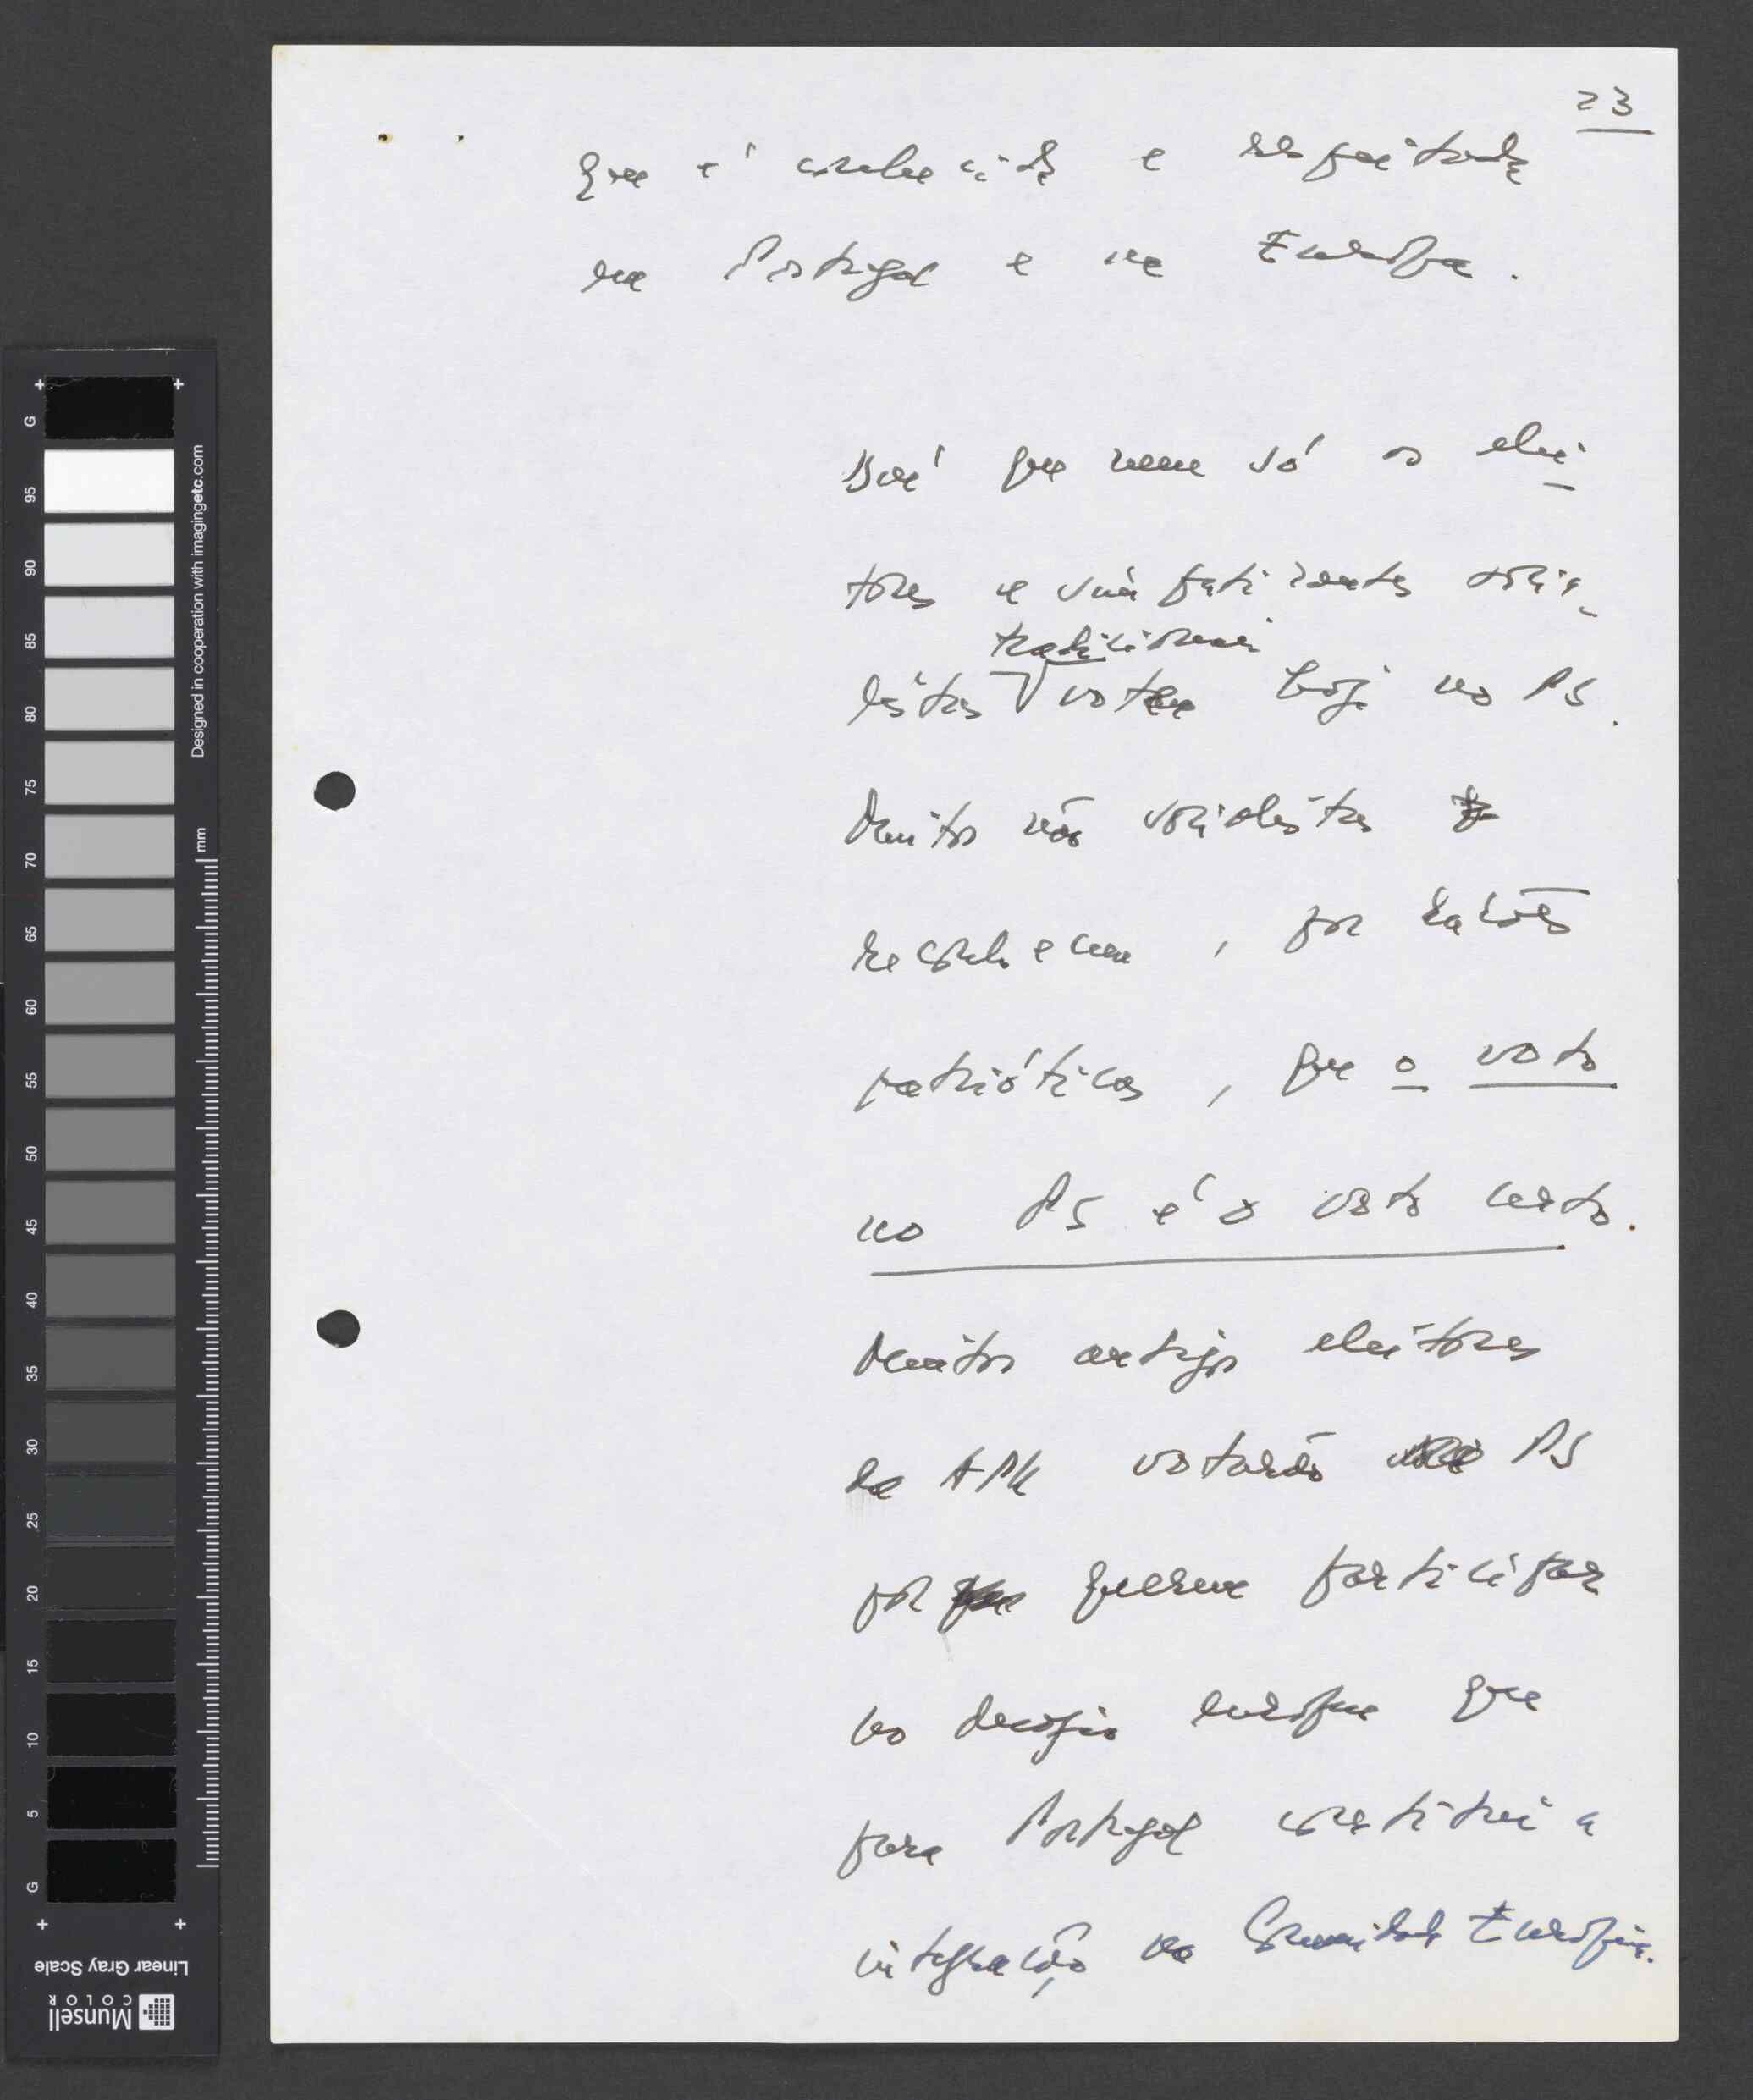 23
que é conhecida e respeitada
em Portugal e na Europa.
que nem só os elei-
tores e simpatizantes socia-
tradicionais
listas votam hoje no PS.
Muitos não socialistas
reconhecem, por razões
patrióticas, que o voto
no PS é o voto certo.
Muitos antigos eleitores
da APU votarão PS
por querem participar
no desafio europeu que
para Portugal constitui a
integração na Comunidade Europeia.
G
95
90
85
80
75
70
65
60
55
50
45
40
35
30
25
20
15
10
5
G
mm
Designed in cooperation with imagingetc.com
Linear Gray Scale
Munsell
COLOR